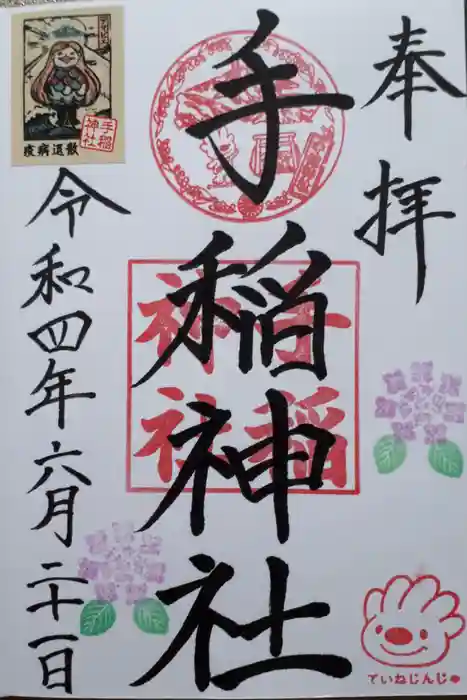 奉拝
手稲神社
手稲
神社
令和四年六月二十一日
疫病退散
手稲
神社
ていねじんじゃ